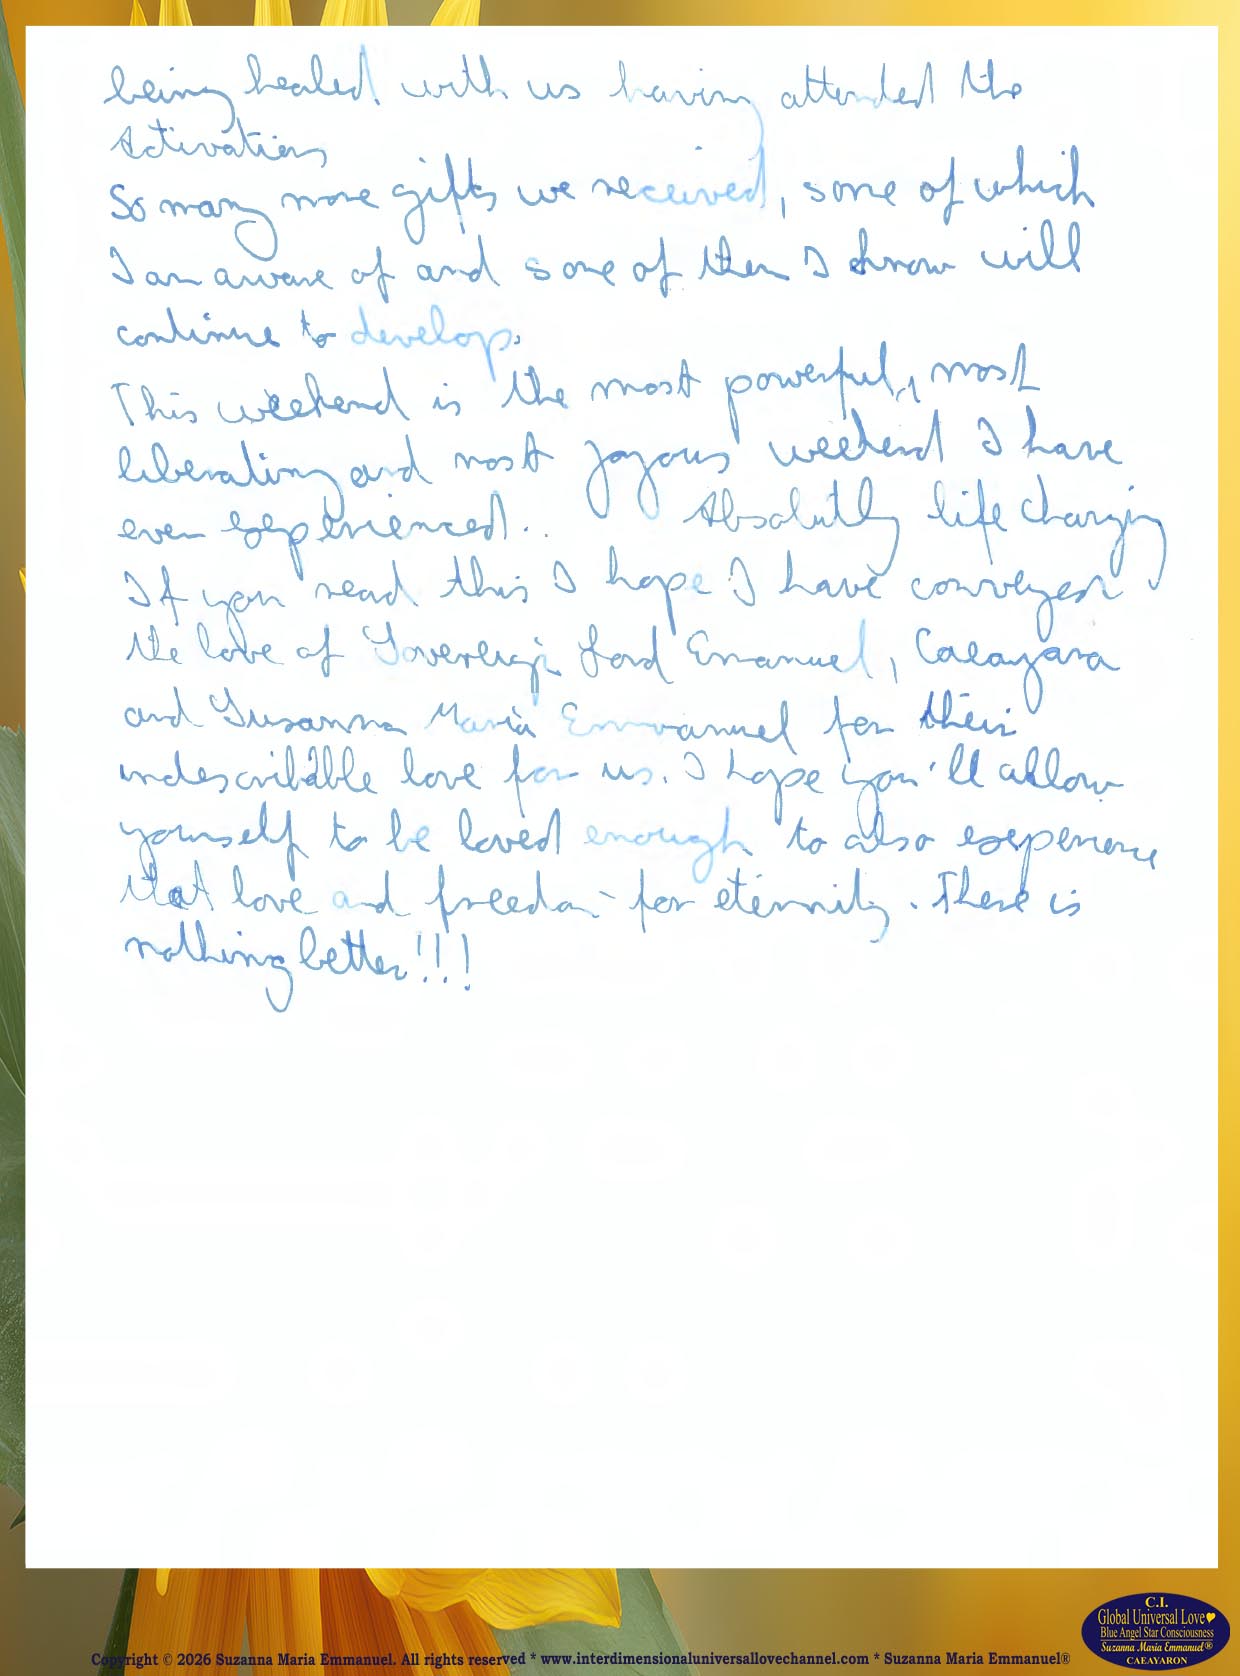 being healed with us having attended the
Activations
So many more gifts we received, some of which
I am aware of and some of them I know will
continue to develop.
This weekend is the most powerful, most
liberating and most joyous weekend I have
ever experienced.. Absolutly life changing
If you read this I hope I have conveyed
the love of Sovereign Lord Emanuel, Caeayara
and Suzanna Maria Emmanuel for their
indescribable love for us. I hope you'll allow
yourself to be loved enough to also experience
that love and freedom - for eternity. There is
nothing better!!!
C.I.
Global Universal Love
Blue Angel Star Consciousness
Suzanna Maria Emmanuel®
CAEAYARON
Copyright © 2026 Suzanna Maria Emmanuel. All rights reserved * www.interdimensionaluniversallovechannel.com * Suzanna Maria Emmanuel®